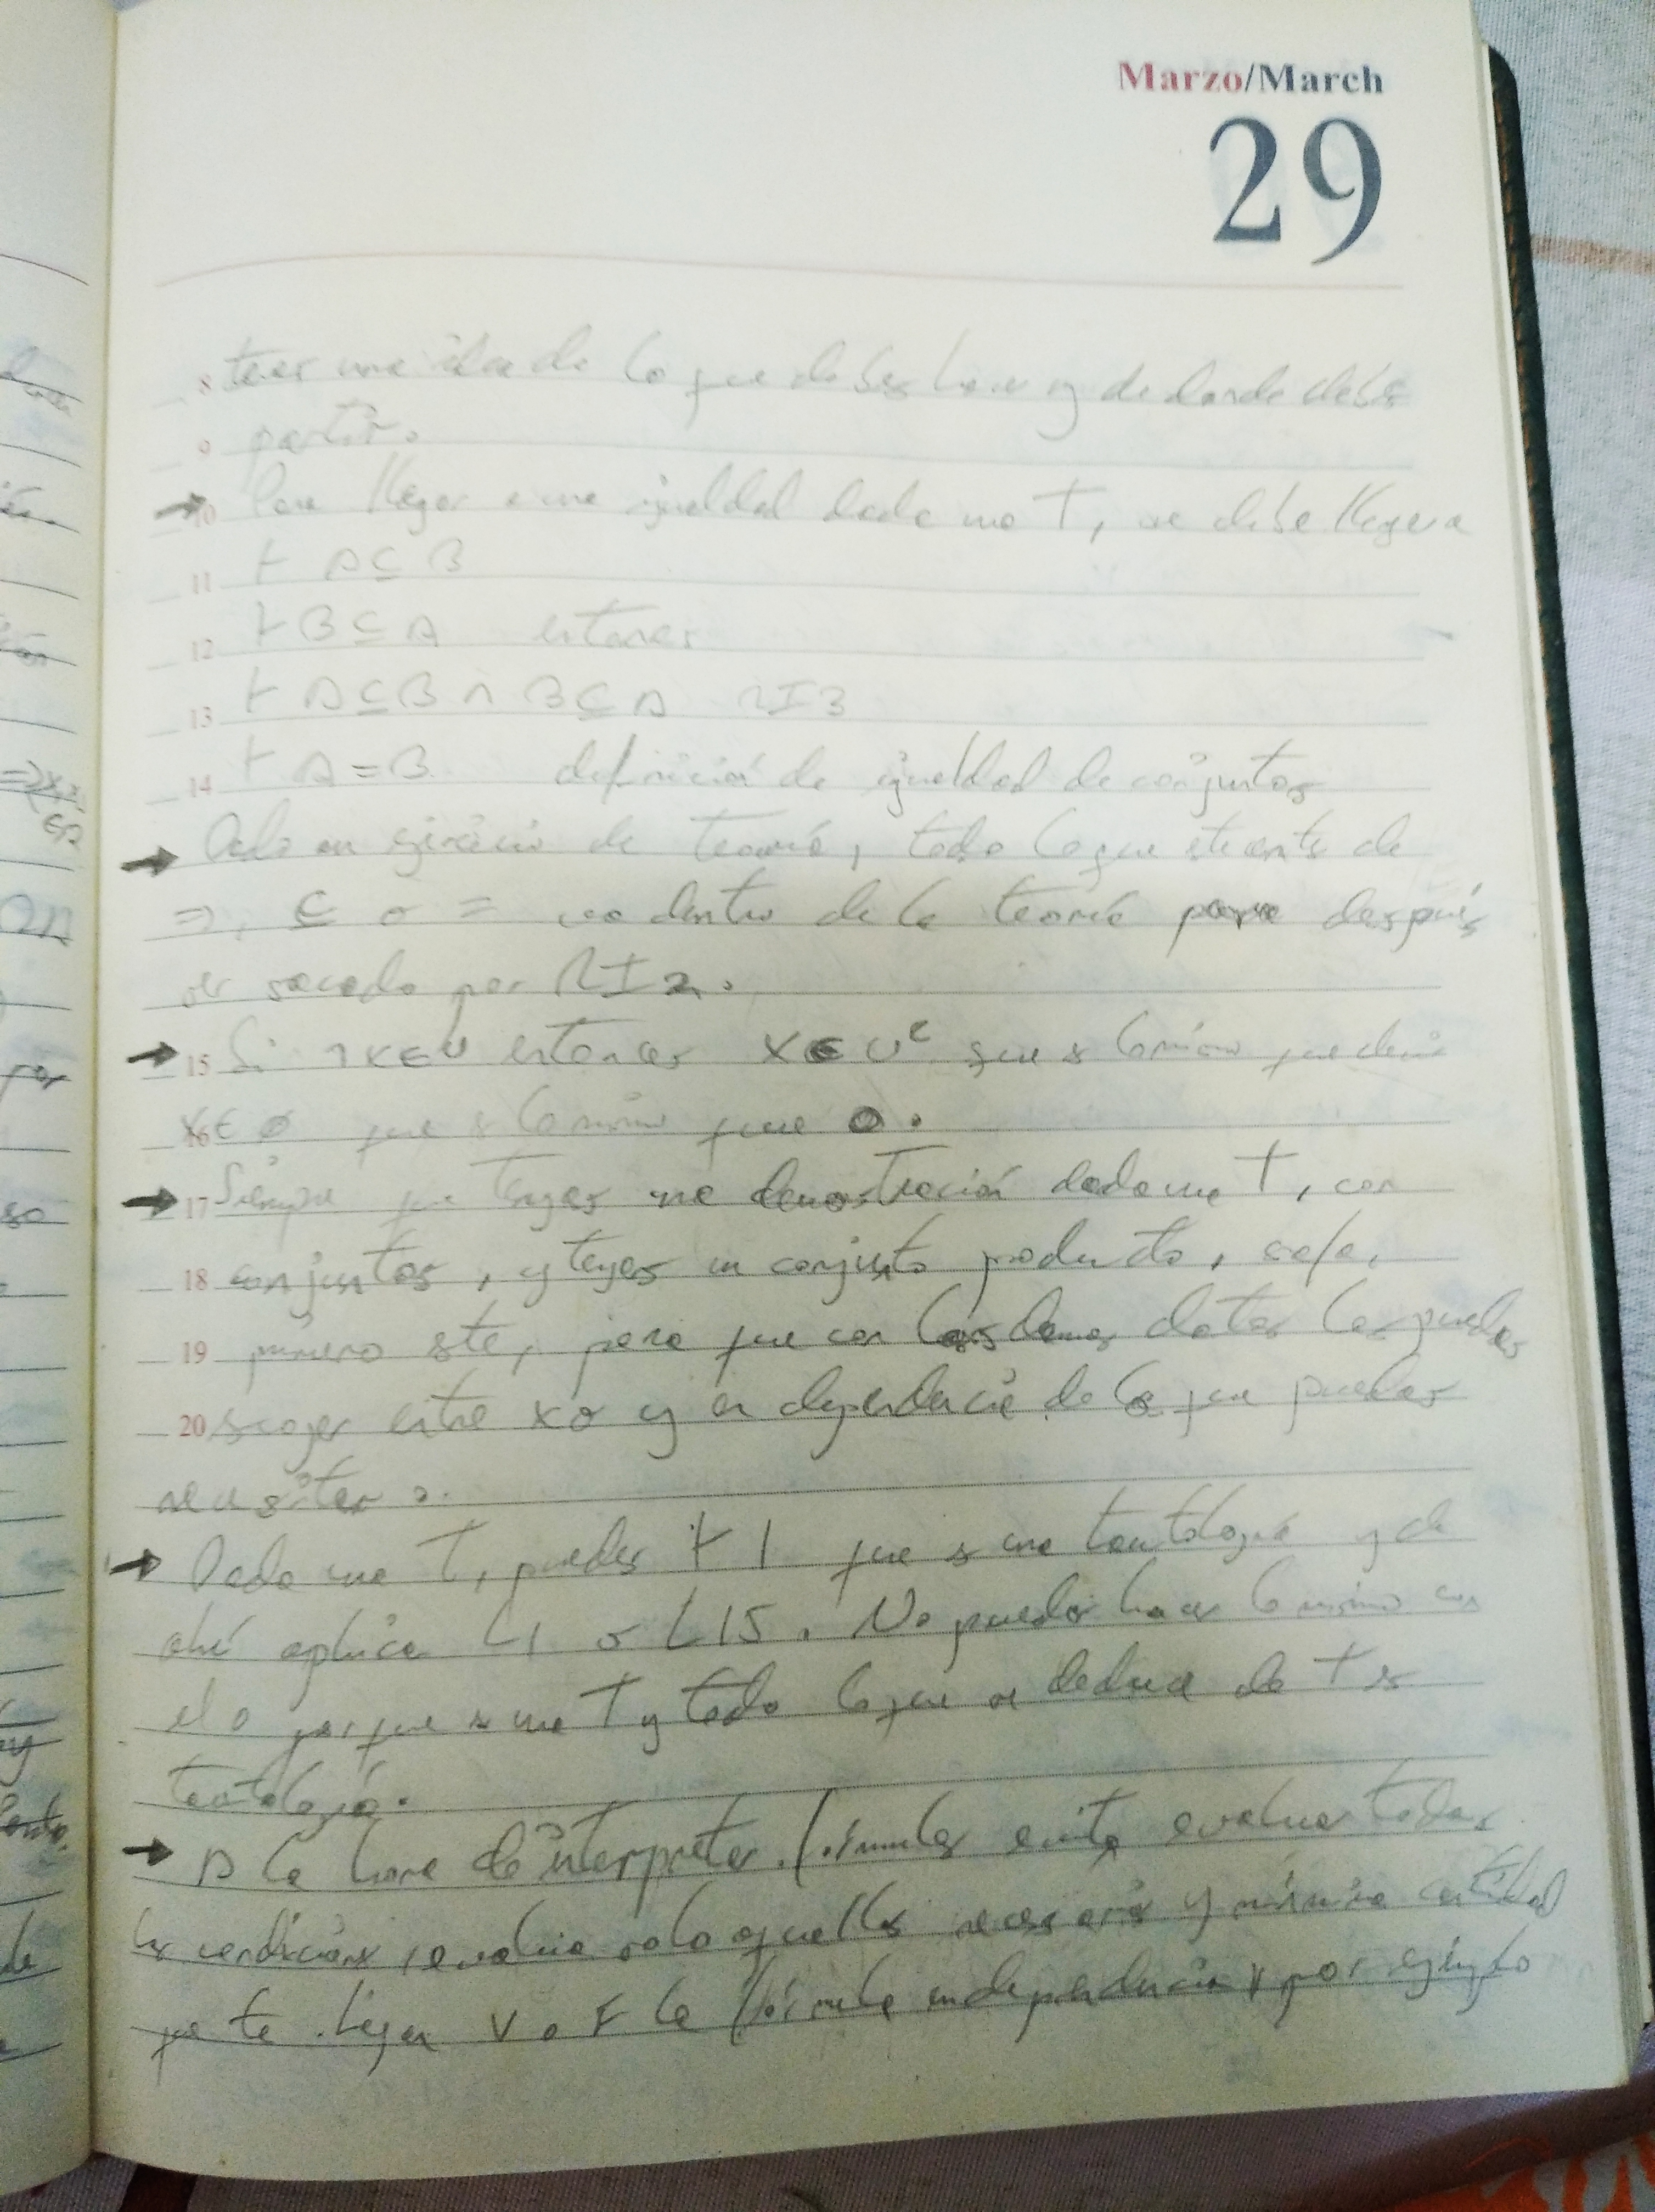 Marzo/March
29
8 tener una idea de lo que debes hacer y de donde debes
9 partir.
→ 10 Para llegar a una igualdad dada una T, se debe llegar a
11 ⊢ A ⊆ B
12 ⊢ B ⊆ A entonces
13 ⊢ A ⊆ B ∧ B ⊆ A RI3
14 ⊢ A = B definición de igualdad de conjuntos
→ Dado un ejercicio de teoría, todo lo que esté antes de
⇒, ⊆ o = va dentro de la teoría para después
ser sacado por RI2.
→ 15 Si ¬x∈U entonces x∈U^c que es lo mismo que decir
16 x∈∅ que es lo mismo que 0.
→ 17 Siempre que tengas una demostración dada una T, con
18 conjuntos, y tengas un conjunto producto,
19 primero este, para que con los demas datos los puedas
20 escoger entre x o y en dependencia de lo que puedas
necesitar.
→ Dada una T, puedes ⊢ 1 que es una tautología y de
ahí aplicar L1 o L15. No puedes hacer lo mismo con
el 0 porque es una T y todo lo que se deduce de T es
tautología.
→ A la hora de interpretar fórmulas evita evaluar todas
las condiciones, evalúa solo aquellas necesarias y mínima cantidad
que te hagan V o F la fórmula por ejemplo